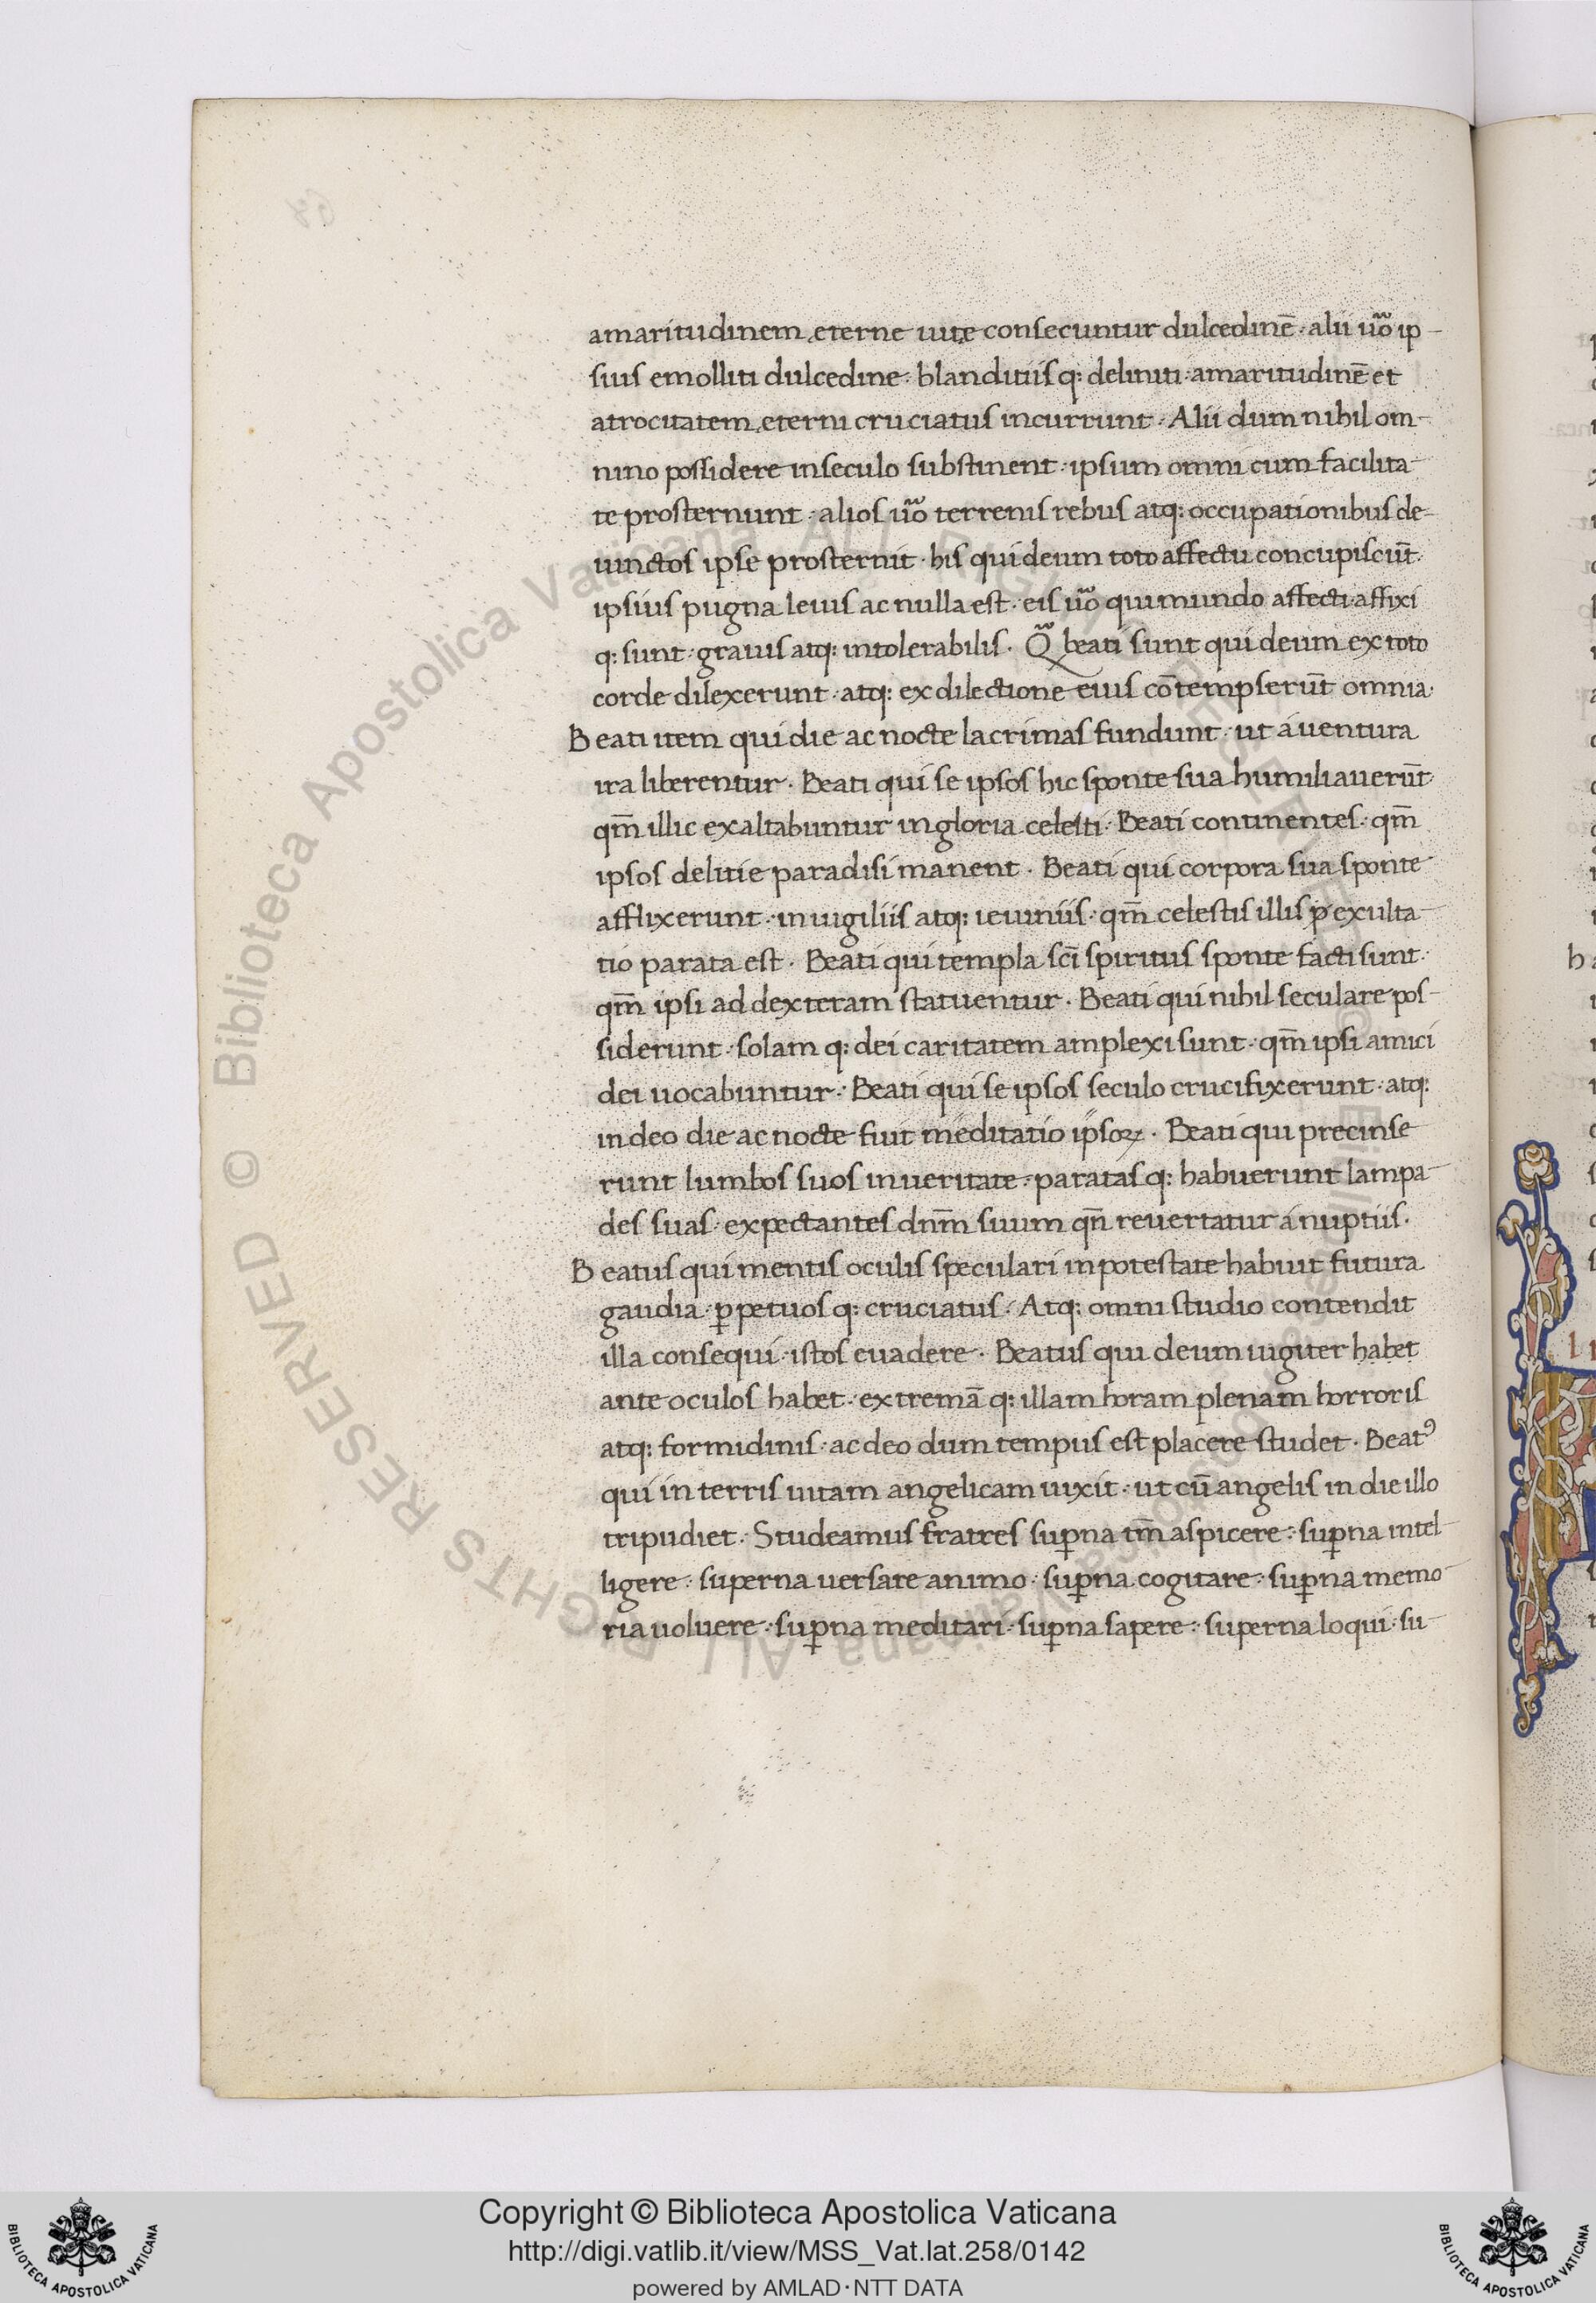 amaritudinem ęterne uitę consecuntur dulcedinē· alii uͦo ip-
sius emolliti dulcedine· blanditiis q: deliniti· amaritudinē et
atrocitatem ęterni cruciatus incurrunt· Alii dum nihil om-
nino possidere in seculo substinent· ipsum omni cum facilita-
te prosternunt· alios uͦo terrenis rebus atq: occupationibus de-
uinctos ipse prosternit· his qui deum toto affectu concupiscūt·
ipsius pugna leuis ac nulla est· eis uͦo qui mundo affecti affixi
q: sunt· grauis atq: intolerabilis· Q̃ beati sunt qui deum ex toto
corde dilexerunt· atq: ex dilectione eius cōtempserūt omnia·
Beati item qui die ac nocte lacrimas fundunt· ut á uentura
ira liberentur· Beati qui se ipsos hic sponte sua humiliauerūt·
qm̄ illic exaltabuntur in gloria celesti· Beati continentes· qm̄
ipsos delitie paradisi manent· Beati qui corpora sua sponte
afflixerunt· in uigiliis atq: ieiuniis· qm̄ celestis illis p̄ exulta-
tio parata est· Beati qui templa sc̄i spiritus sponte facti sunt·
qm̄ ipsi ad dexteram statuentur· Beati qui nihil seculare pos-
siderunt· solam q: dei caritatem amplexi sunt· qm̄ ipsi amici
dei uocabuntur· Beati qui se ipsos seculo crucifixerunt· atq:
in deo die ac nocte fuit meditatio ipsoꝝ· Beati qui precinse
runt lumbos suos in ueritate· paratas q: habuerunt lampa-
des suas· expectantes dnm̄ suum qn̄ reuertatur á nuptiis·
Beatus qui mentis oculis speculari in potestate habuit futura
gaudia· ꝑpetuos q: cruciatus· Atq: omni studio contendit
illa consequi· istos euadere· Beatus qui deum iugiter habet
ante oculos habet· extremā q: illam horam plenam horroris
atq: formidinis· ac deo dum tempus est placere studet· Beatꝰ
qui in terris uitam angelicam uixit· ut cū angelis in die illo
tripudiet· Studeamus fratres suꝑna tm̄ aspicere· suꝑna intel-
ligere· superna uersare animo· suꝑna cogitare· suꝑna memo-
ria uoluere· suꝑna meditari· suꝑna sapere· superna loqui· su-
Copyright © Biblioteca Apostolica Vaticana
http://digi.vatlib.it/view/MSS_Vat.lat.258/0142
powered by AMLAD·NTT DATA